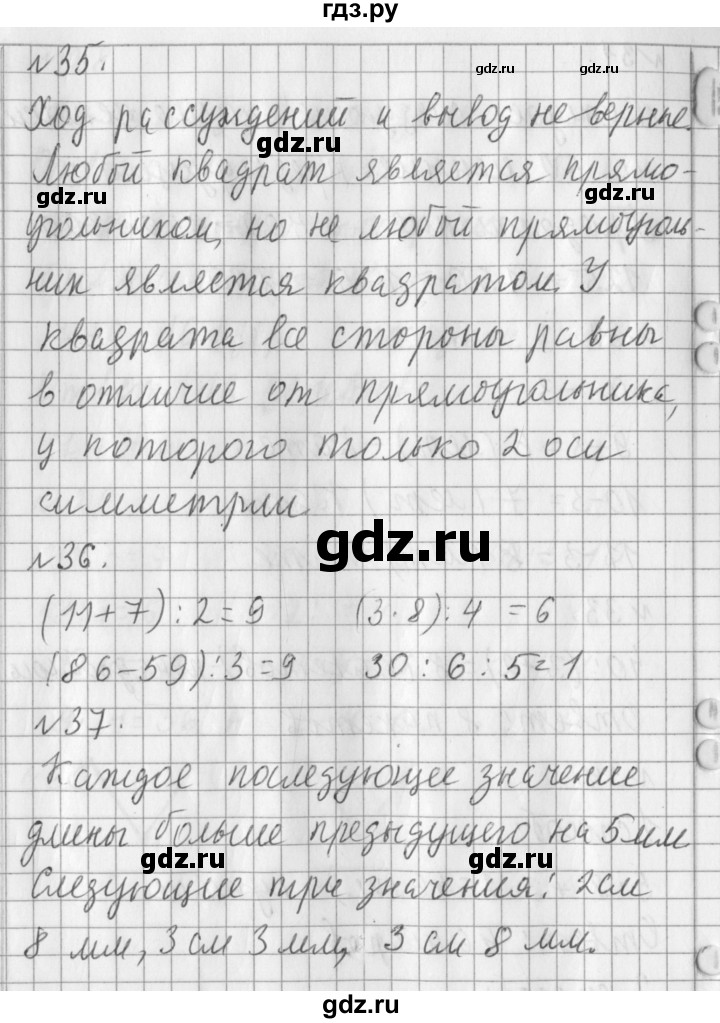 гдз.ру
№35.
gdz.ru gdz.ru
Ход рассуждений и вывод неверные.
gdz.ru gdz.ru
Любой квадрат является прямо-
gdz.ru gdz.ru
угольником, но не любой прямоуголь-
ник является квадратом. У
квадрата все стороны равны
в отличие от прямоугольника,
у которого только 2 оси
симметрии.
gdz.ru
№36.
(11+7):2=9 (3·8):4=6
(86-59):3=9 30:6:5=1
№37.
Каждое последующее значение
длины больше предыдущего на 5мм
gdz.ru gdz.ru
Следующие три значения: 2см
8 мм, 3 см 3 мм, 3 см 8 мм.
gdz.ru
gdz.ru